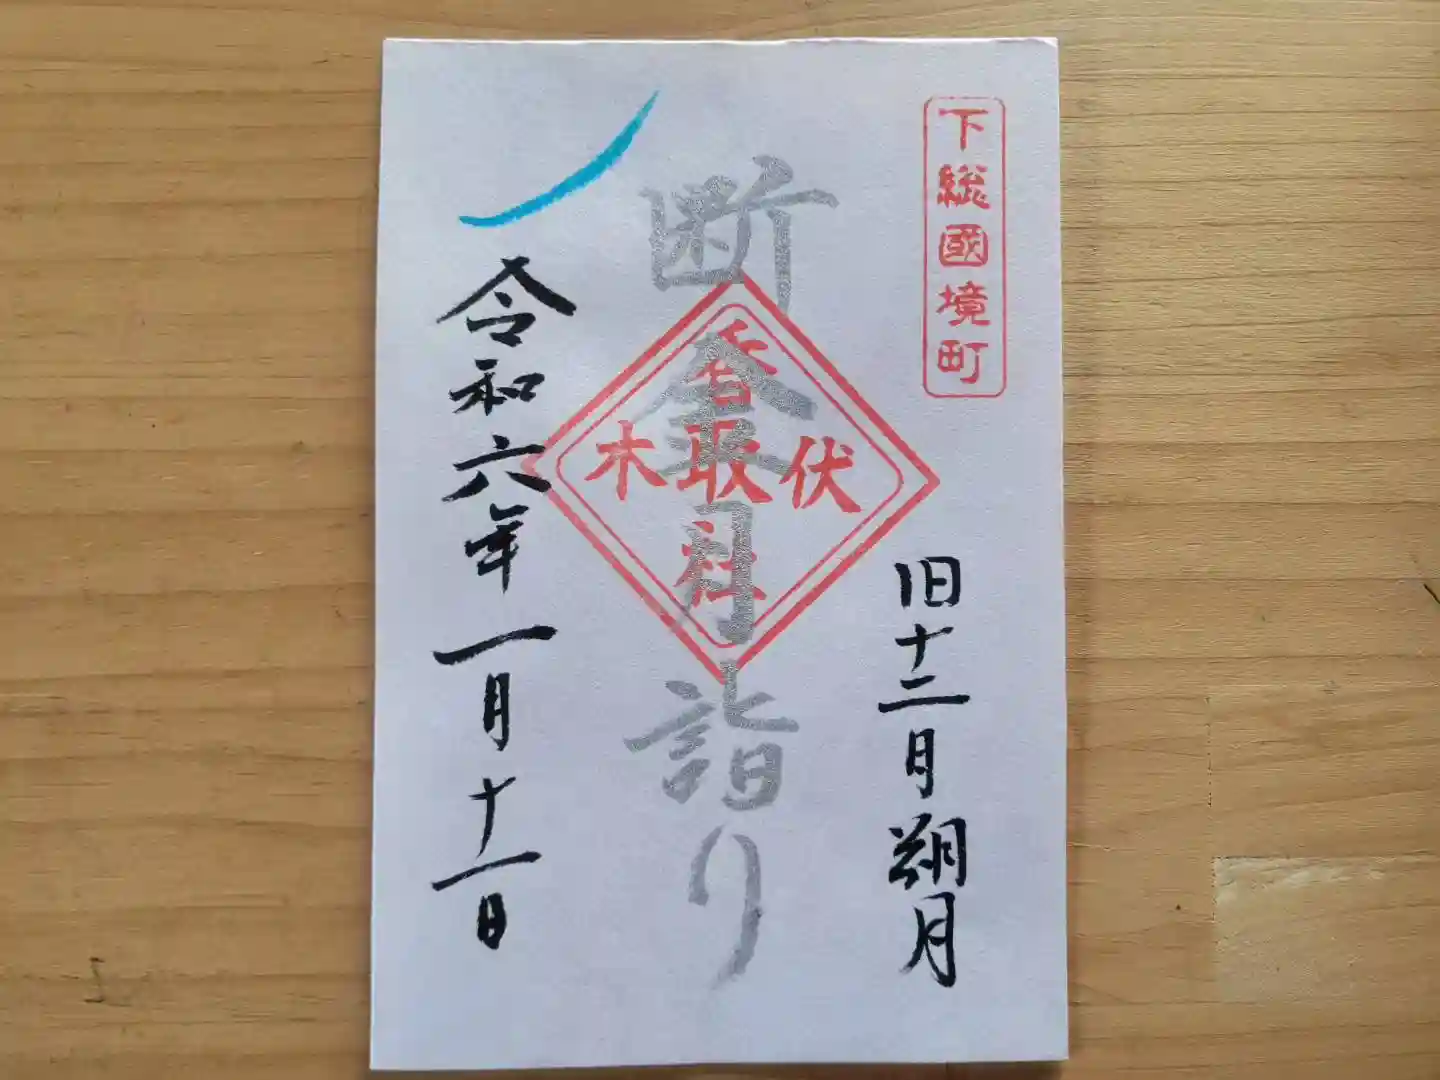 下総國境町
旧十二月朔月
断金月詣り
伏木
香取社
令和六年一月十一日